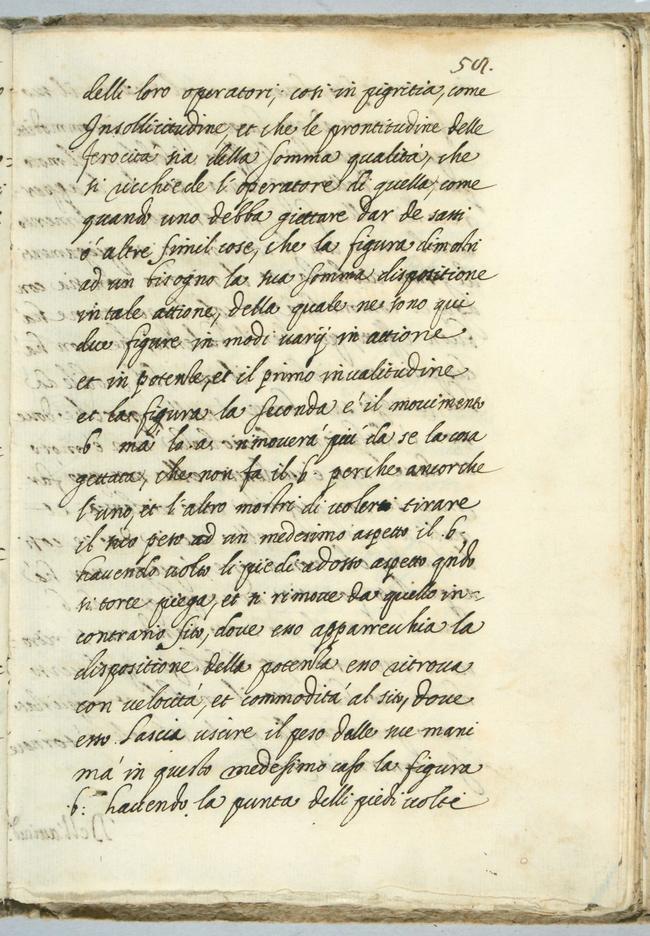 501.
delli loro operatori, cosi in pigritia, come
Insollicitudine, et che le prontitudine delle
ferocità sia della somma qualità, che
si richiede l'operatore di quella, come
quando uno debba gittare dar de sassi
ò altre simil cose, che la figura dimostri
ad un bisogno la sua somma dispositione
in tale attione, della quale ne sono qui
due figure in modi varij in attione
et in potentia, et il primo in valitudine
et la figura la seconda é il movimento
b mà la a rimoverà più da se la cosa
gettata, che non fa il b perche ancorche
l'uno, et l'altro mostri di volersi tirare
il suo peso ad un medesimo aspetto il b
havendo volto li piedi adosto aspetto qñdo
si torce piega, et si rimove da quello in=
contrario sito, dove esso apparrecchia la
dispositione della potentia esso ritrova
con velocità, et commodità al sito, dove
esso lascia uscire il peso dalle sue mani
mà in questo medesimo caso la figura
b: havendo la punta delli piedi volte